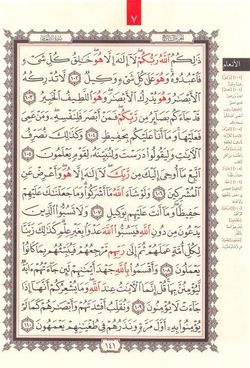 ٧
الأنعام
ذَٰلِكُمُ ٱللَّهُ رَبُّكُمْ لَآ إِلَٰهَ إِلَّا هُوَ خَٰلِقُ كُلِّ شَىْءٍ
فَٱعْبُدُوهُ وَهُوَ عَلَىٰ كُلِّ شَىْءٍ وَكِيلٌ ١٠٢ لَّا تُدْرِكُهُ
ٱلْأَبْصَٰرُ وَهُوَ يُدْرِكُ ٱلْأَبْصَٰرَ وَهُوَ ٱللَّطِيفُ ٱلْخَبِيرُ ١٠٣
قَدْ جَآءَكُم بَصَآئِرُ مِن رَّبِّكُمْ فَمَنْ أَبْصَرَ فَلِنَفْسِهِۦ وَمَنْ عَمِىَ
فَعَلَيْهَا وَمَآ أَنَا۠ عَلَيْكُم بِحَفِيظٍ ١٠٤ وَكَذَٰلِكَ نُصَرِّفُ
ٱلْءَايَٰتِ وَلِيَقُولُوا۟ دَرَسْتَ وَلِنُبَيِّنَهُۥ لِقَوْمٍ يَعْلَمُونَ ١٠٥
ٱتَّبِعْ مَآ أُوحِىَ إِلَيْكَ مِن رَّبِّكَ لَآ إِلَٰهَ إِلَّا هُوَ وَأَعْرِضْ عَنِ
ٱلْمُشْرِكِينَ ١٠٦ وَلَوْ شَآءَ ٱللَّهُ مَآ أَشْرَكُوا۟ وَمَا جَعَلْنَٰكَ عَلَيْهِمْ
حَفِيظًا وَمَآ أَنتَ عَلَيْهِم بِوَكِيلٍ ١٠٧ وَلَا تَسُبُّوا۟ ٱلَّذِينَ
يَدْعُونَ مِن دُونِ ٱللَّهِ فَيَسُبُّوا۟ ٱللَّهَ عَدْوًۢا بِغَيْرِ عِلْمٍ كَذَٰلِكَ زَيَّنَّا
لِكُلِّ أُمَّةٍ عَمَلَهُمْ ثُمَّ إِلَىٰ رَبِّهِم مَّرْجِعُهُمْ فَيُنَبِّئُهُم بِمَا كَانُوا۟
يَعْمَلُونَ ١٠٨ وَأَقْسَمُوا۟ بِٱللَّهِ جَهْدَ أَيْمَٰنِهِمْ لَئِن جَآءَتْهُمْ ءَايَةٌ
لَّيُؤْمِنُنَّ بِهَا قُلْ إِنَّمَا ٱلْءَايَٰتُ عِندَ ٱللَّهِ وَمَا يُشْعِرُكُمْ أَنَّهَآ إِذَا
جَآءَتْ لَا يُؤْمِنُونَ ١٠٩ وَنُقَلِّبُ أَفْـِٔدَتَهُمْ وَأَبْصَٰرَهُمْ كَمَا لَمْ
يُؤْمِنُوا۟ بِهِۦٓ أَوَّلَ مَرَّةٍ وَنَذَرُهُمْ فِى طُغْيَٰنِهِمْ يَعْمَهُونَ ١١٠
١٤١